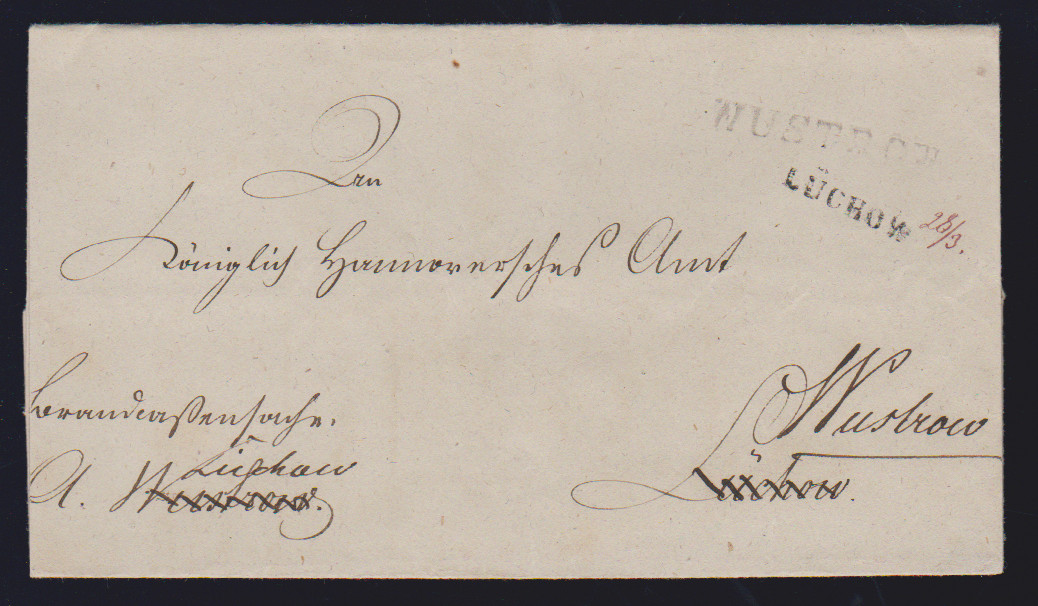 WUSTROW
LÜCHOW 28/3.
An
Königlich Hannoversches Amt
Brandcaßensache.
Lüchow
A. Wustrow.
Wustrow
Lüchow.